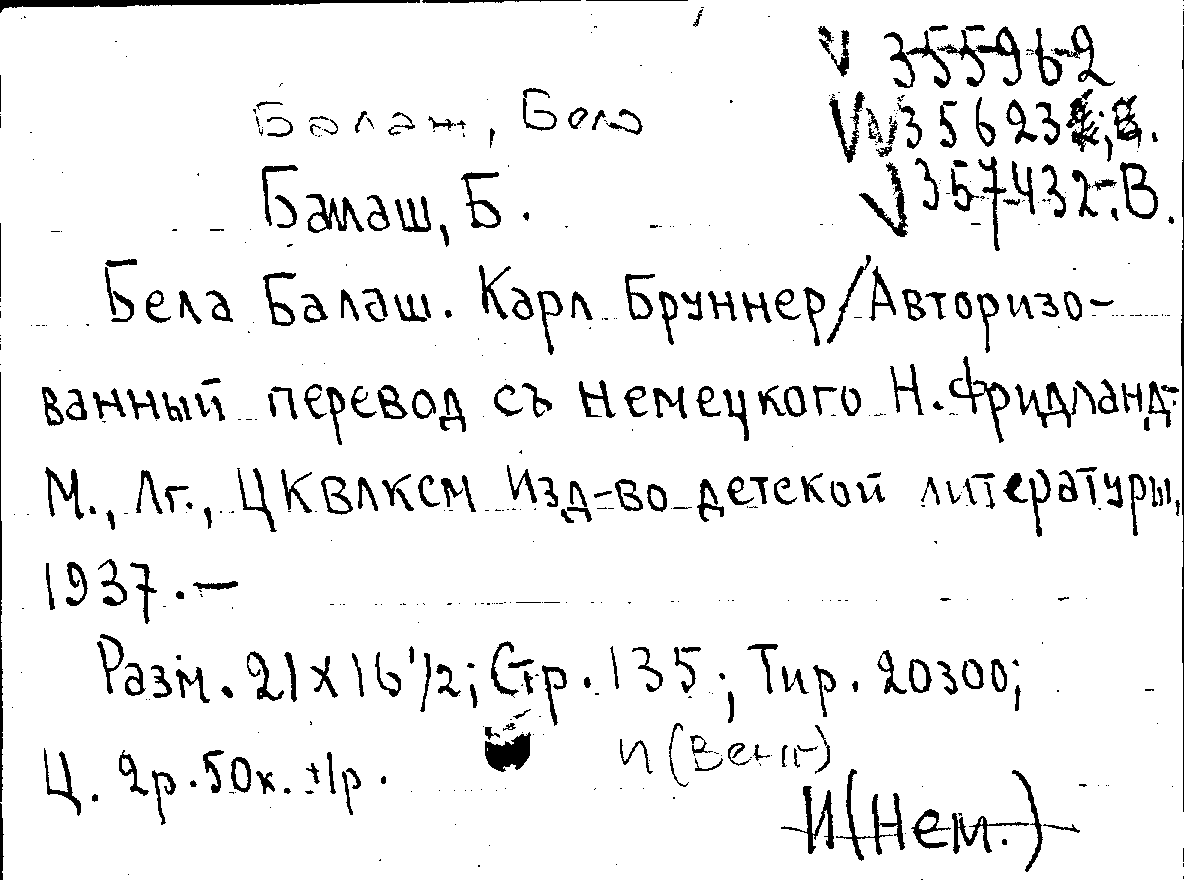 355962
Балаж, Бела
35623
Балаш, Б.
357432-В.
Бела Балаш. Карл Бруннер/Авторизо-
ванный перевод съ немецкого Н. Фридланд-
М., Лг., ЦКВЛКСМ Изд-во детской литературы,
1937.—
Разм. 21х16 1/2; Стр. 135; Тир. 20300;
Ц. 2р. 50к. +1р.
И (Венг)
И (Нем.)